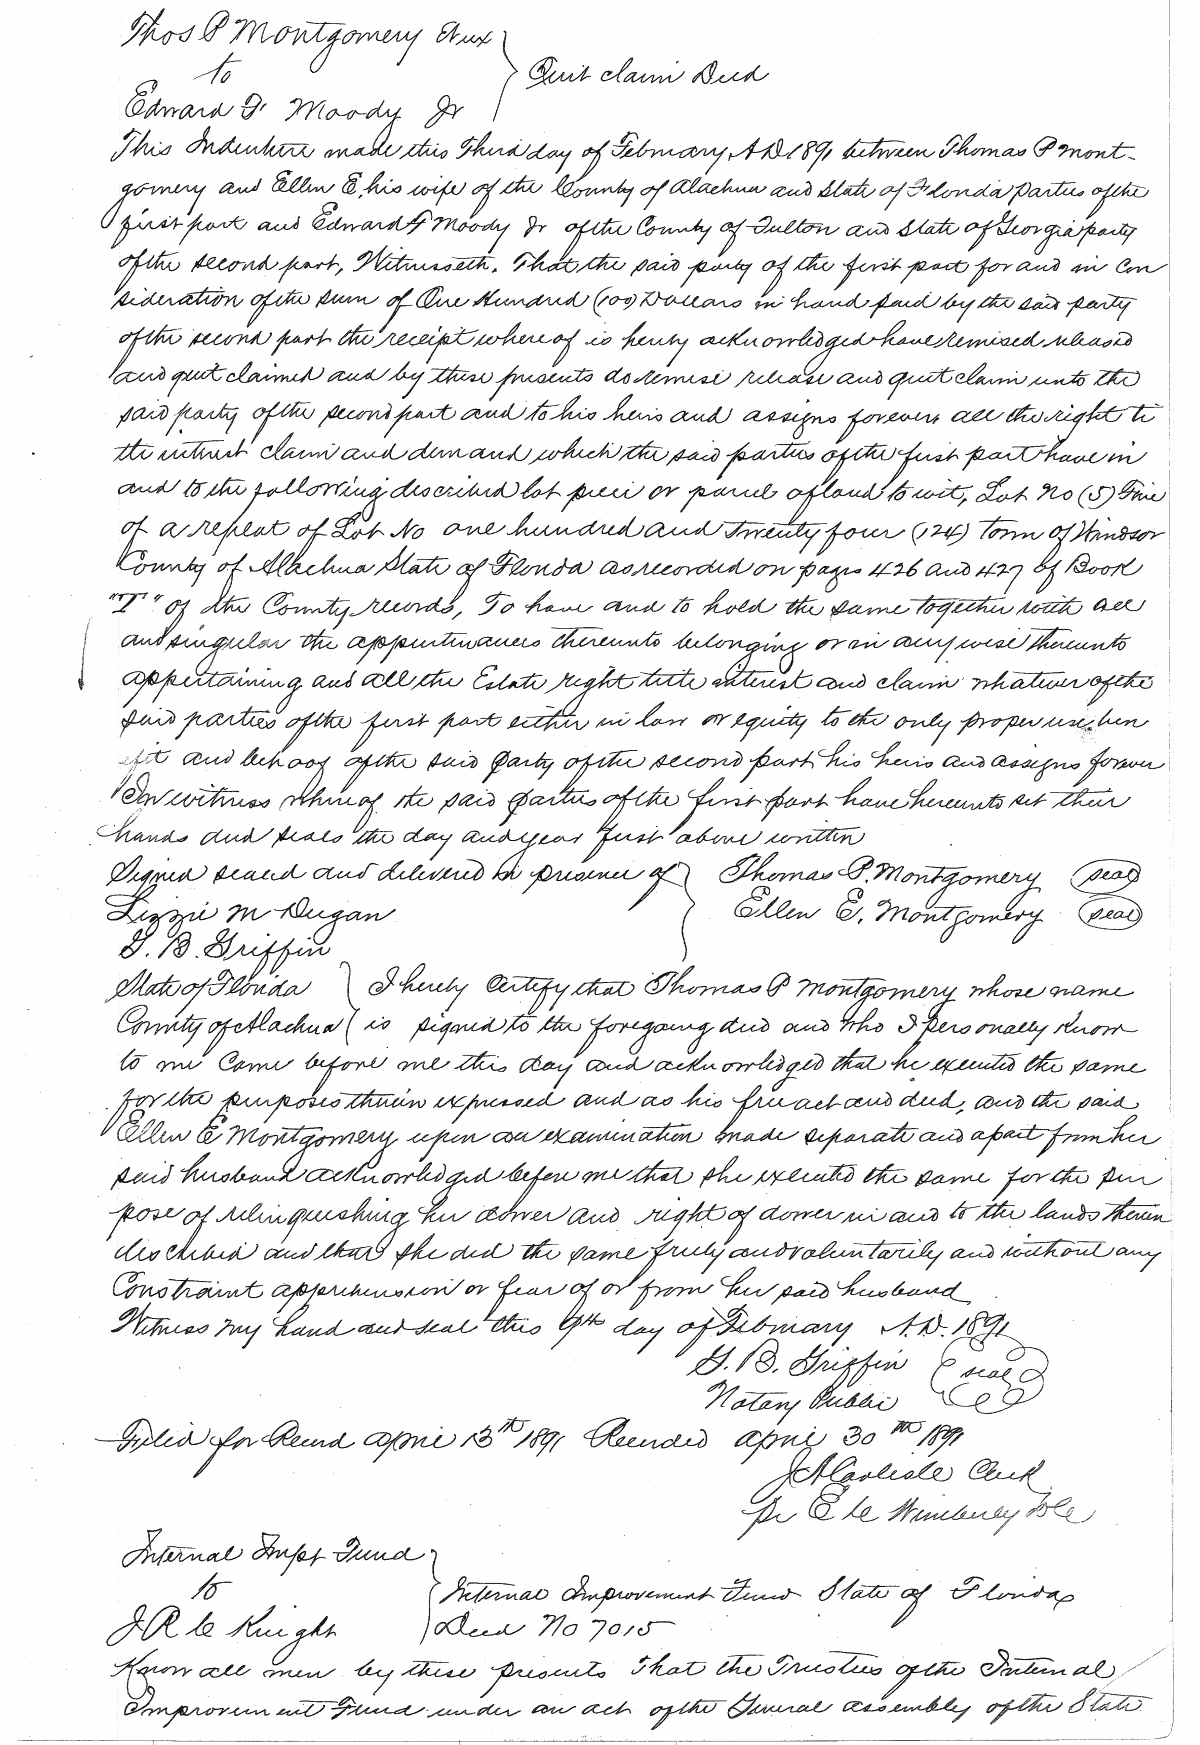 Thos P Montgomery & ux
to
Quit claim Deed
Edward F. Moody Jr
This Indenture made this Third day of February, A D 1891 between Thomas P Mont-
gomery and Ellen E, his wife of the County of Alachua and State of Florida parties of the
first part and Edward F Moody Jr of the County of Fulton and State of Georgia party
of the second part, Witnesseth, That the said party of the first part for and in Con
sideration of the sum of One Hundred (100) Dollars in hand paid by the said party
of the second part the receipt where of is hereby acknowledged have remised released
and quit claimed and by these presents do remise release and quit claim unto the
said party of the second part and to his heirs and assigns forever, all the right ti
tle interest claim and demand which the said parties of the first part have in
and to the following described lot piece or parcel of land to wit, Lot No (5) Five
of a replat of Lot No one hundred and Twenty four (124) Town of Windsor
County of Alachua State of Florida as recorded on pages 426 and 427 of Book
"I" of the County records, To have and to hold the same together with all
and singular the appurtenances thereunto belonging or in any wise thereunto
appertaining and all the Estate right title interest and claim whatever of the
said parties of the first part either in law or equity to the only proper use, ben
efit and behoof of the said party of the second part his heirs and assigns forever
In witness whereof the said parties of the first part have hereunto set their
hands and seals the day and year first above written
Signed sealed and delivered in presence of Thomas P. Montgomery (seal)
Lizzie M Dugan Ellen E. Montgomery (seal)
G. B. Griffin
State of Florida I hereby Certify that Thomas P Montgomery whose name
County of Alachua is signed to the foregoing deed and who I personally know
to me Came before me this day and acknowledged that he executed the same
for the purposes therein expressed and as his free act and deed, and the said
Ellen E Montgomery upon an examination made separate and apart from her
said husband acknowledged before me that she executed the same for the pur
pose of relinquishing her dower and right of dower in and to the lands therein
described and that she did the same freely and voluntarily and without any
Constraint apprehension or fear of or from her said husband
Witness my hand and seal this 9th day of February A.D. 1891
G. B. Griffin (seal)
Notary Public
Filed for Record April 13th 1891 Recorded April 30th 1891
J A Carlisle Clerk
pr
Internal Impt Fund
to
Internal Improvement Fund State of Florida
J R Knight Deed No 7015
Know all men by these presents That the Trustees of the Internal
Improvement Fund under an act of the General assembly of the State